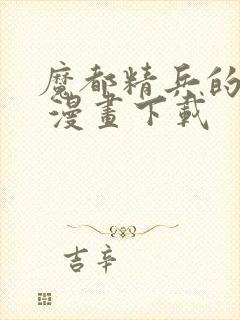 魔都精兵的
漫畫下載
吉辛